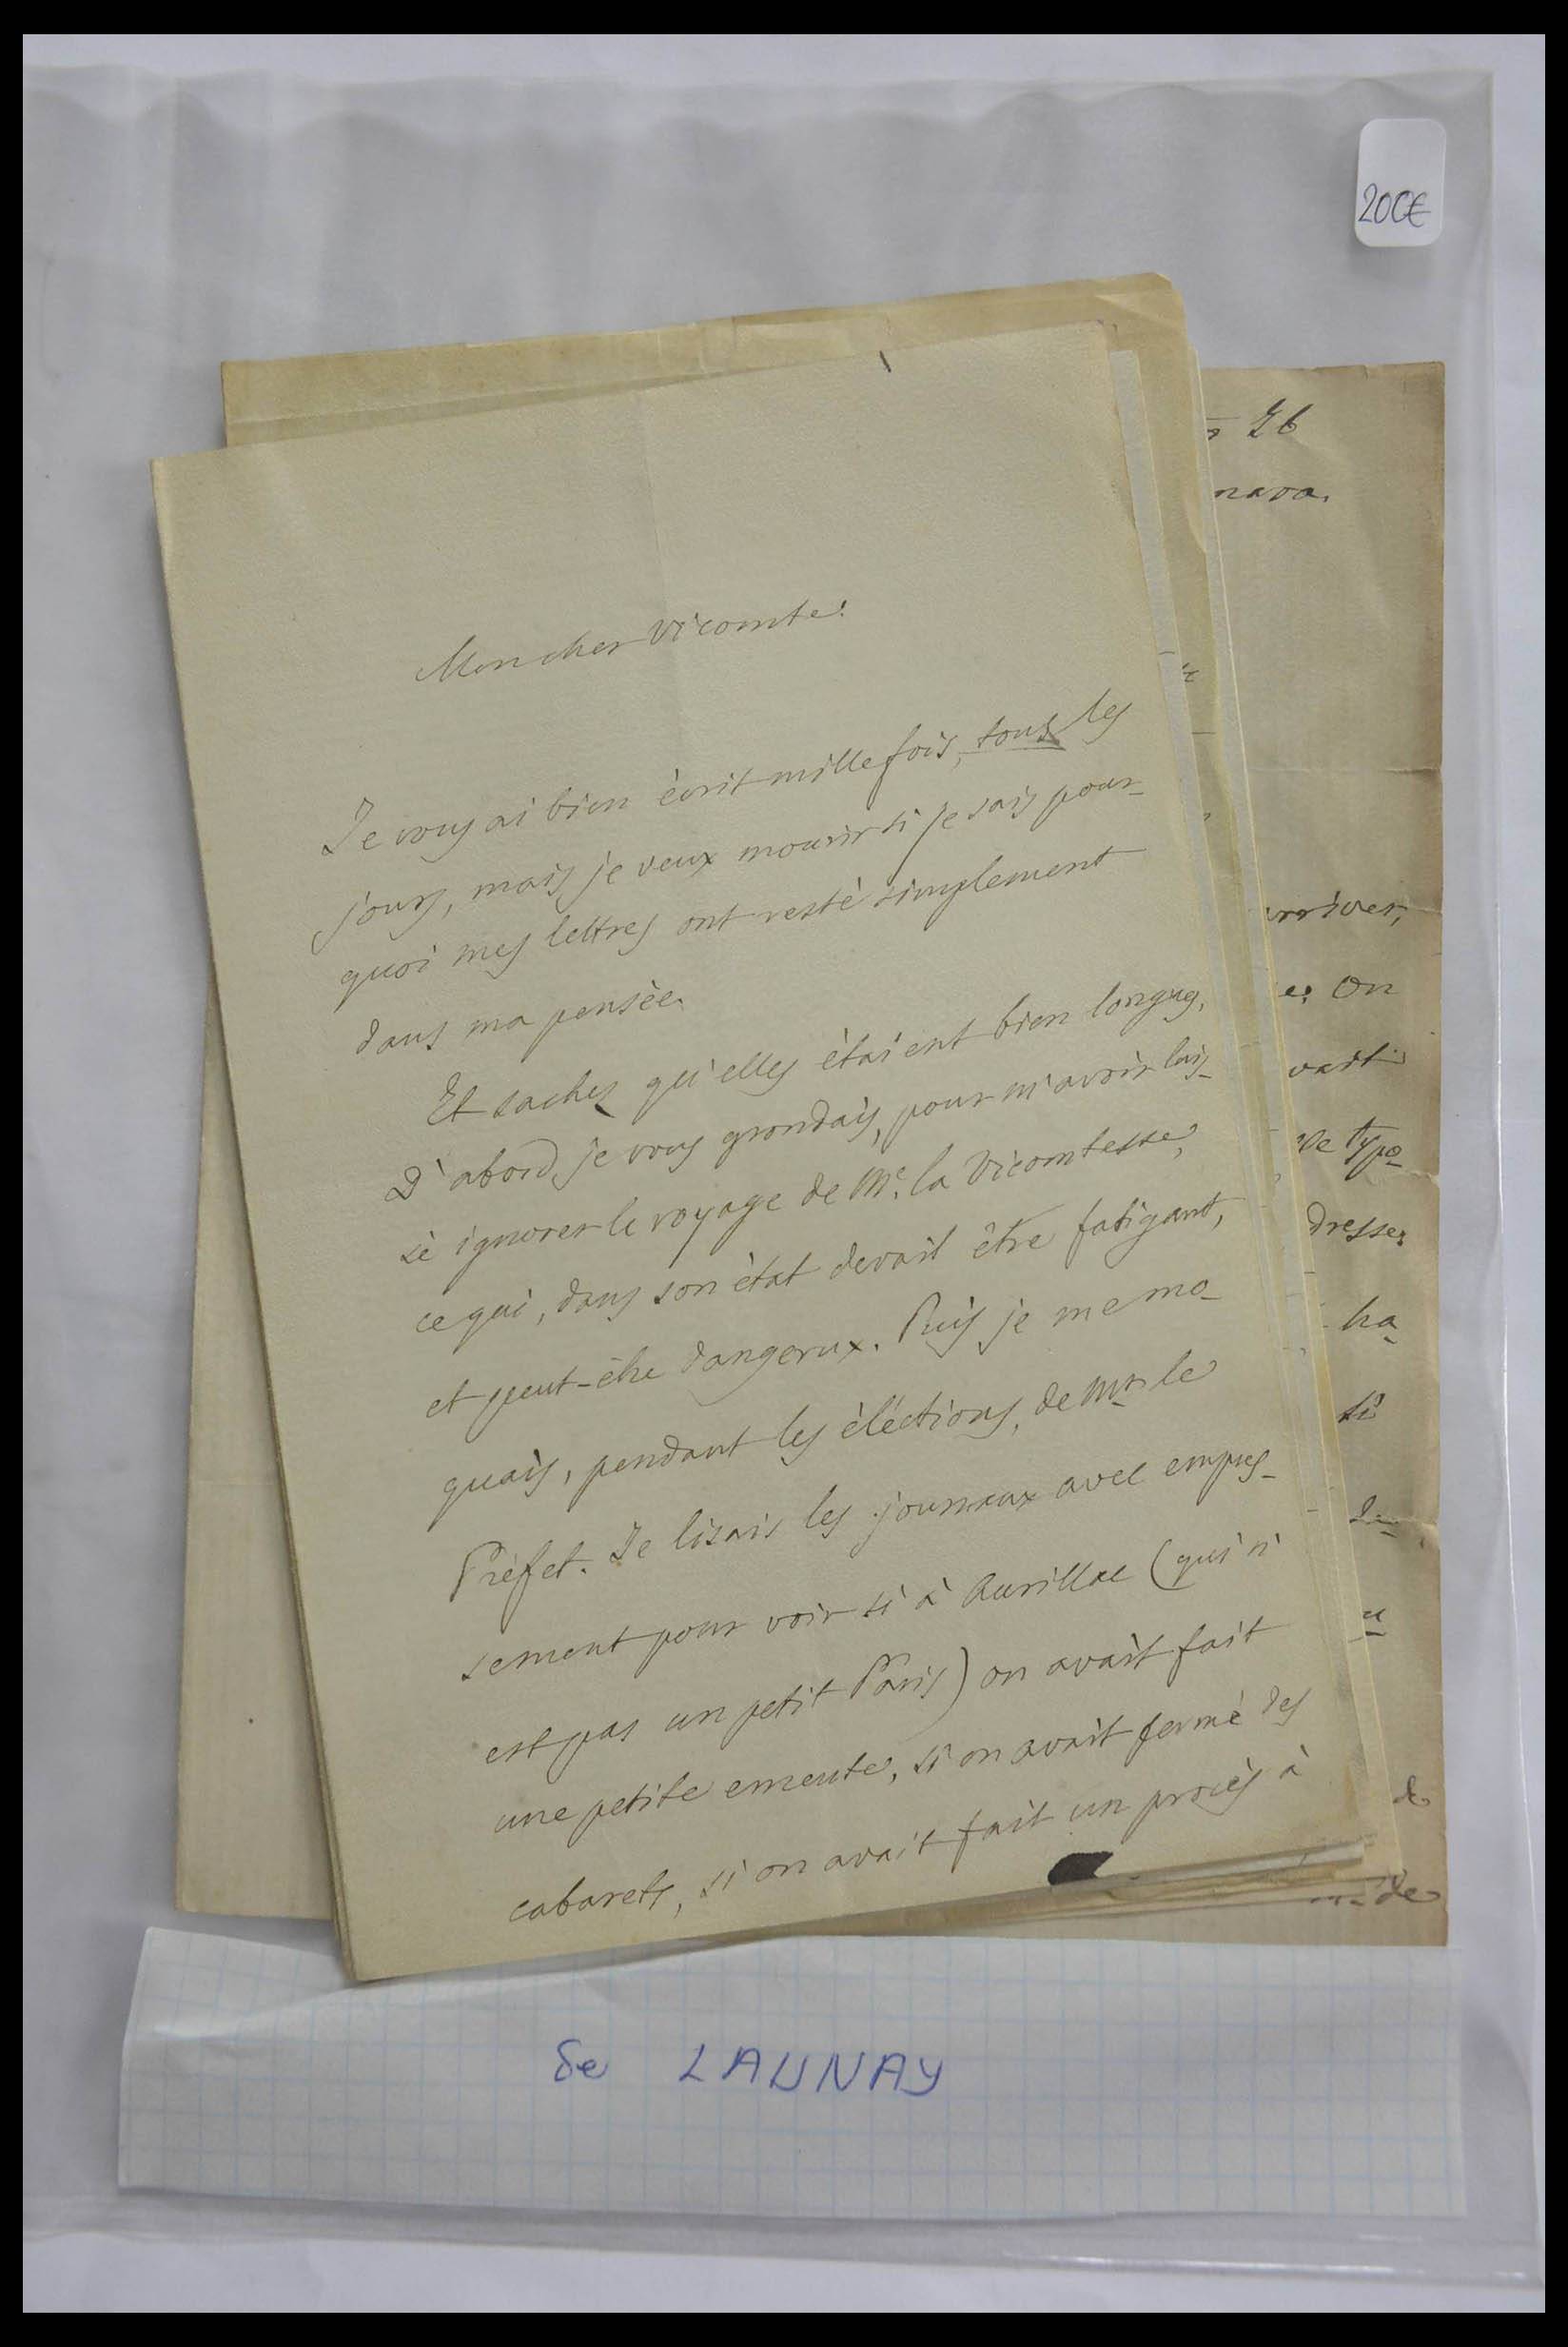 200€
26
Mon cher Vicomte!
Je vous ai bien écrit mille fois, tous les
jours, mais je veux mourir si je sais pour-
quoi mes lettres ont resté simplement
dans ma pensée.
Et sachez qu'elles étaient bien longues.
D'abord, je vous grondais, pour m'avoir lais-
sé ignorer le voyage de Me. la Vicomtesse,
ce qui, dans son état devait être fatigant,
et peut-être dangereux. Puis je me mo-
quais, pendant les éléctions, de Mr le
Préfet. Je lisais les journaux avec empres-
sement pour voir si à Aurillac (qui n'
est pas un petit Paris) on avait fait
une petite emeute, si on avait fermé des
cabarets, si on avait fait un procès à
arriver,
On
typo-
dresse
ha-
si
de
de LAUNAY